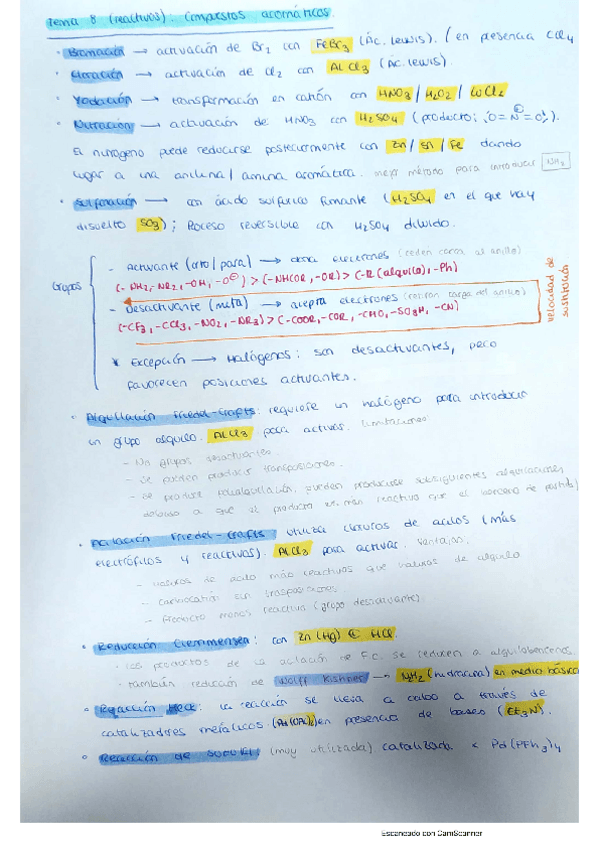 Tema 8 (reactivos): Compuestos aromáticos.
· Bromación → activación de Br2 con FeBr3 (Ác. Lewis). (en presencia CCl4
· Cloración → activación de Cl2 con AlCl3 (Ác. Lewis).
· Yodación → transformación en catión con HNO3 / H2O2 / CuCl2
· Nitración → activación de HNO3 con H2SO4 (producto:
El nitrógeno puede reducirse posteriormente con Zn / Sn / Fe dando
lugar a una anilina / amina aromática. mejor método para introducir NH2
· Sulfonación → con ácido sulfúrico fumante (H2SO4 en el que hay
disuelto SO3); Proceso reversible con H2SO4 diluido.
Grupos
- Activante (orto / para) → dona electrones (ceden carga al anillo)
(-NH2, -NR2, -OH, -O⊖) > (-NHCOR, -OR) > (-R (alquilo), -Ph)
- Desactivante (meta) → acepta electrones (retiran carga del anillo)
(-CF3, -CCl3, -NO2, -NR3) > (-COOR, -COR, -CHO, -SO3H, -CN)
velocidad de
sustitución
* Excepción → Halógenos: son desactivantes, pero
favorecen posiciones activantes.
· Alquilación Friedel-Crafts: requiere un halógeno para introducir
un grupo alquilo. AlCl3 para activar. Limitaciones
- No grupos desactivantes
- Se pueden producir transposiciones.
- Se produce polialquilación, pueden producirse subsiguientes alquilaciones
debido a que el producto es más reactivo que el benceno de partida
· Acilación Friedel-Crafts: utiliza cloruros de acilos (más
electrófilos y reactivos). AlCl3 para activar. Ventajas:
- haluros de acilo más reactivos que haluros de alquilo
- Carbocatión sin trasposiciones
- Producto menos reactivo (grupo desactivante)
· Reducción Clemmensen: con Zn(Hg) HCl.
- Los productos de la acilación de F.C. se reducen a alquilbencenos.
- También reducción de Wolff Kishner → (hidracina) en medio básico
· Reacción Heck: la reacción se lleva a cabo a través de
catalizadores metálicos (Pd(OAc)2) en presencia de bases (Et3N).
· Reacción de Suzuki: (muy utilizada) catalizada x Pd(PPh3)4
Escaneado con CamScanner